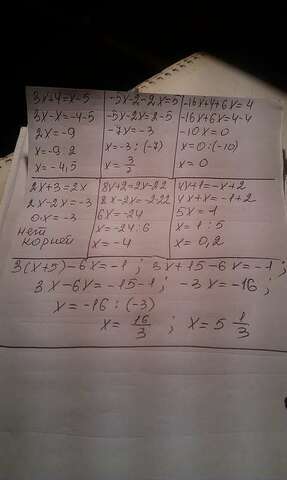 3x+4=x-5
3x-x=-4-5
2x=-9
x=-9:2
x=-4,5
-5x-2-2x=5
-5x-2x=2-5
-7x=-3
x=-3:(-7)
x=3/7
-16x+4+6x=4
-16x+6x=4-4
-10x=0
x=0:(-10)
x=0
2x+3=2x
2x-2x=-3
0·x=-3
нет
корней
8x+2=2x-22
8x-2x=-2-22
6x=-24
x=-24:6
x=-4
4x+1=-x+2
4x+x=-1+2
5x=1
x=1:5
x=0,2
3(x+5)-6x=-1; 3x+15-6x=-1;
3x-6x=-15-1; -3x=-16;
x=-16:(-3)
x=16/3; x=5 1/3